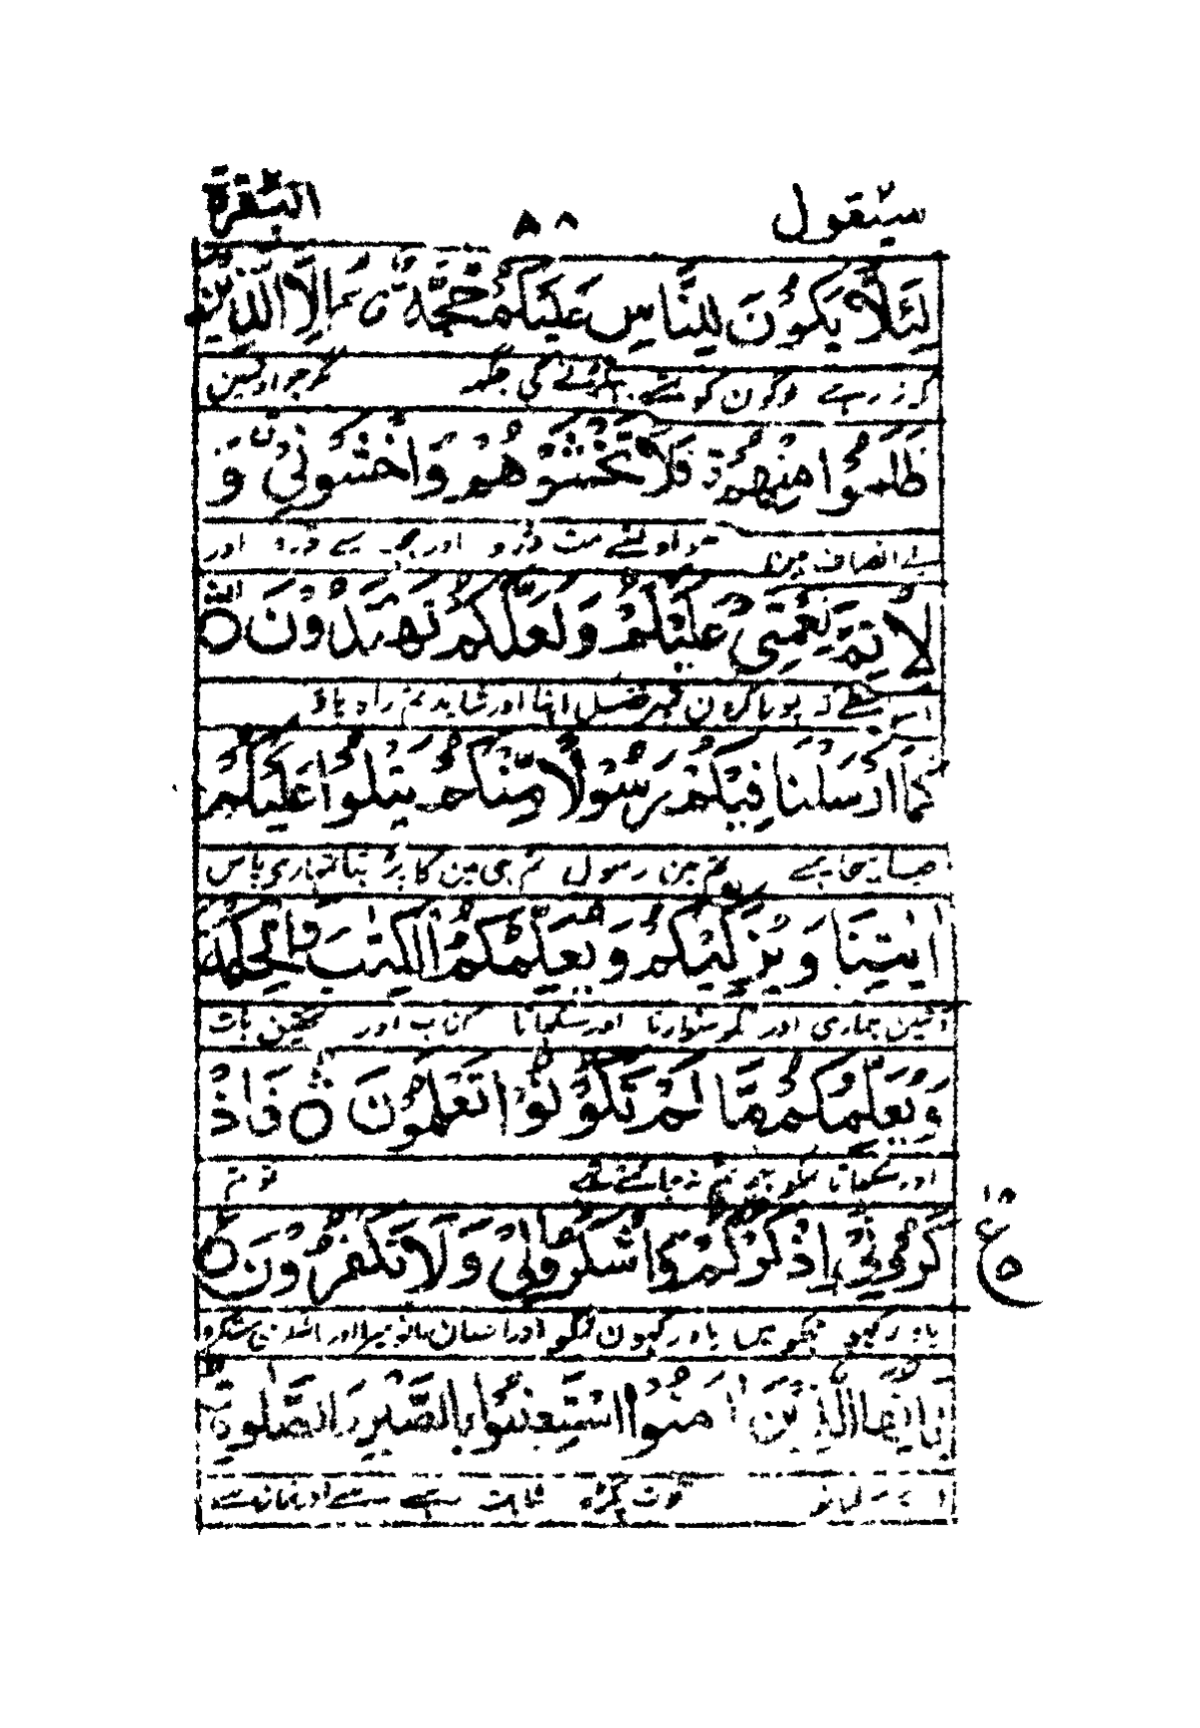 سیقول ۵۸ البقرة
لِئَلَّا يَكُونَ لِلنَّاسِ عَلَيْكُمْ حُجَّةٌ اِلَّا الَّذِيْنَ
کہ نہ رہے لوگون کو تمسے جھگڑنے کی جگہ مگر جو اونمین
ظَلَمُوْا مِنْهُمْ فَلَا تَخْشَوْهُمْ وَاخْشَوْنِيْ وَ
بے انصاف ہین سو اونسے مت ڈرو اور مجہ سے ڈرو اور
لِاُتِمَّ نِعْمَتِيْ عَلَيْكُمْ وَلَعَلَّكُمْ تَهْتَدُوْنَ
اسواسطے کہ پورا کرون تمپر فضل اپنا اور شاید تم راہ پاؤ
كَمَا اَرْسَلْنَا فِيْكُمْ رَسُوْلًا مِّنْكُمْ يَتْلُوْا عَلَيْكُمْ
جیسا بھیجا ہمنے تم مین رسول تم ہی مین کا پڑہتا تمہاری پاس
اٰيٰتِنَا وَيُزَكِّيْكُمْ وَيُعَلِّمُكُمُ الْكِتٰبَ وَالْحِكْمَةَ
آیتین ہماری اور تمکو سنوارتا اور سکھاتا کتاب اور تحقیق بات
وَيُعَلِّمُكُمْ مَّا لَمْ تَكُوْنُوْا تَعْلَمُوْنَ فَاذْ
اور سکھاتا تمکو جو تم نہ جانتے تھے تو تم
كُرُوْنِيْ اَذْكُرْكُمْ وَاشْكُرُوْا لِيْ وَلَا تَكْفُرُوْنِ
یاد رکھو مجکو میں یاد رکھون تمکو اور احسان مانو میرا اور ناشکری مت کرو
يٰاَيُّهَا الَّذِيْنَ اٰمَنُوا اسْتَعِيْنُوْا بِالصَّبْرِ وَالصَّلٰوةِ
اے مسلمانو قوت پکڑو ثابت رہنے سے اور نماز سے